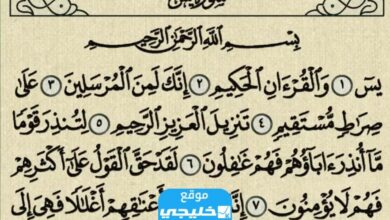 بِسْمِ اللَّهِ الرَّحْمَٰنِ الرَّحِيمِ
يسٓ ١ وَالْقُرْءَانِ الْحَكِيمِ ٢ إِنَّكَ لَمِنَ الْمُرْسَلِينَ ٣ عَلَىٰ
صِرَاطٍ مُّسْتَقِيمٍ ٤ تَنزِيلَ الْعَزِيزِ الرَّحِيمِ ٥ لِتُنذِرَ قَوْمًا
مَّا أُنذِرَ ءَابَاؤُهُمْ فَهُمْ غَافِلُونَ ٦ لَقَدْ حَقَّ الْقَوْلُ عَلَىٰ أَكْثَرِهِمْ
فَهُمْ لَا يُؤْمِنُونَ ٧ إِنَّا أَعْنَاقِهِمْ أَغْلَالًا فَهِىَ إِلَى
موقع
خليجي